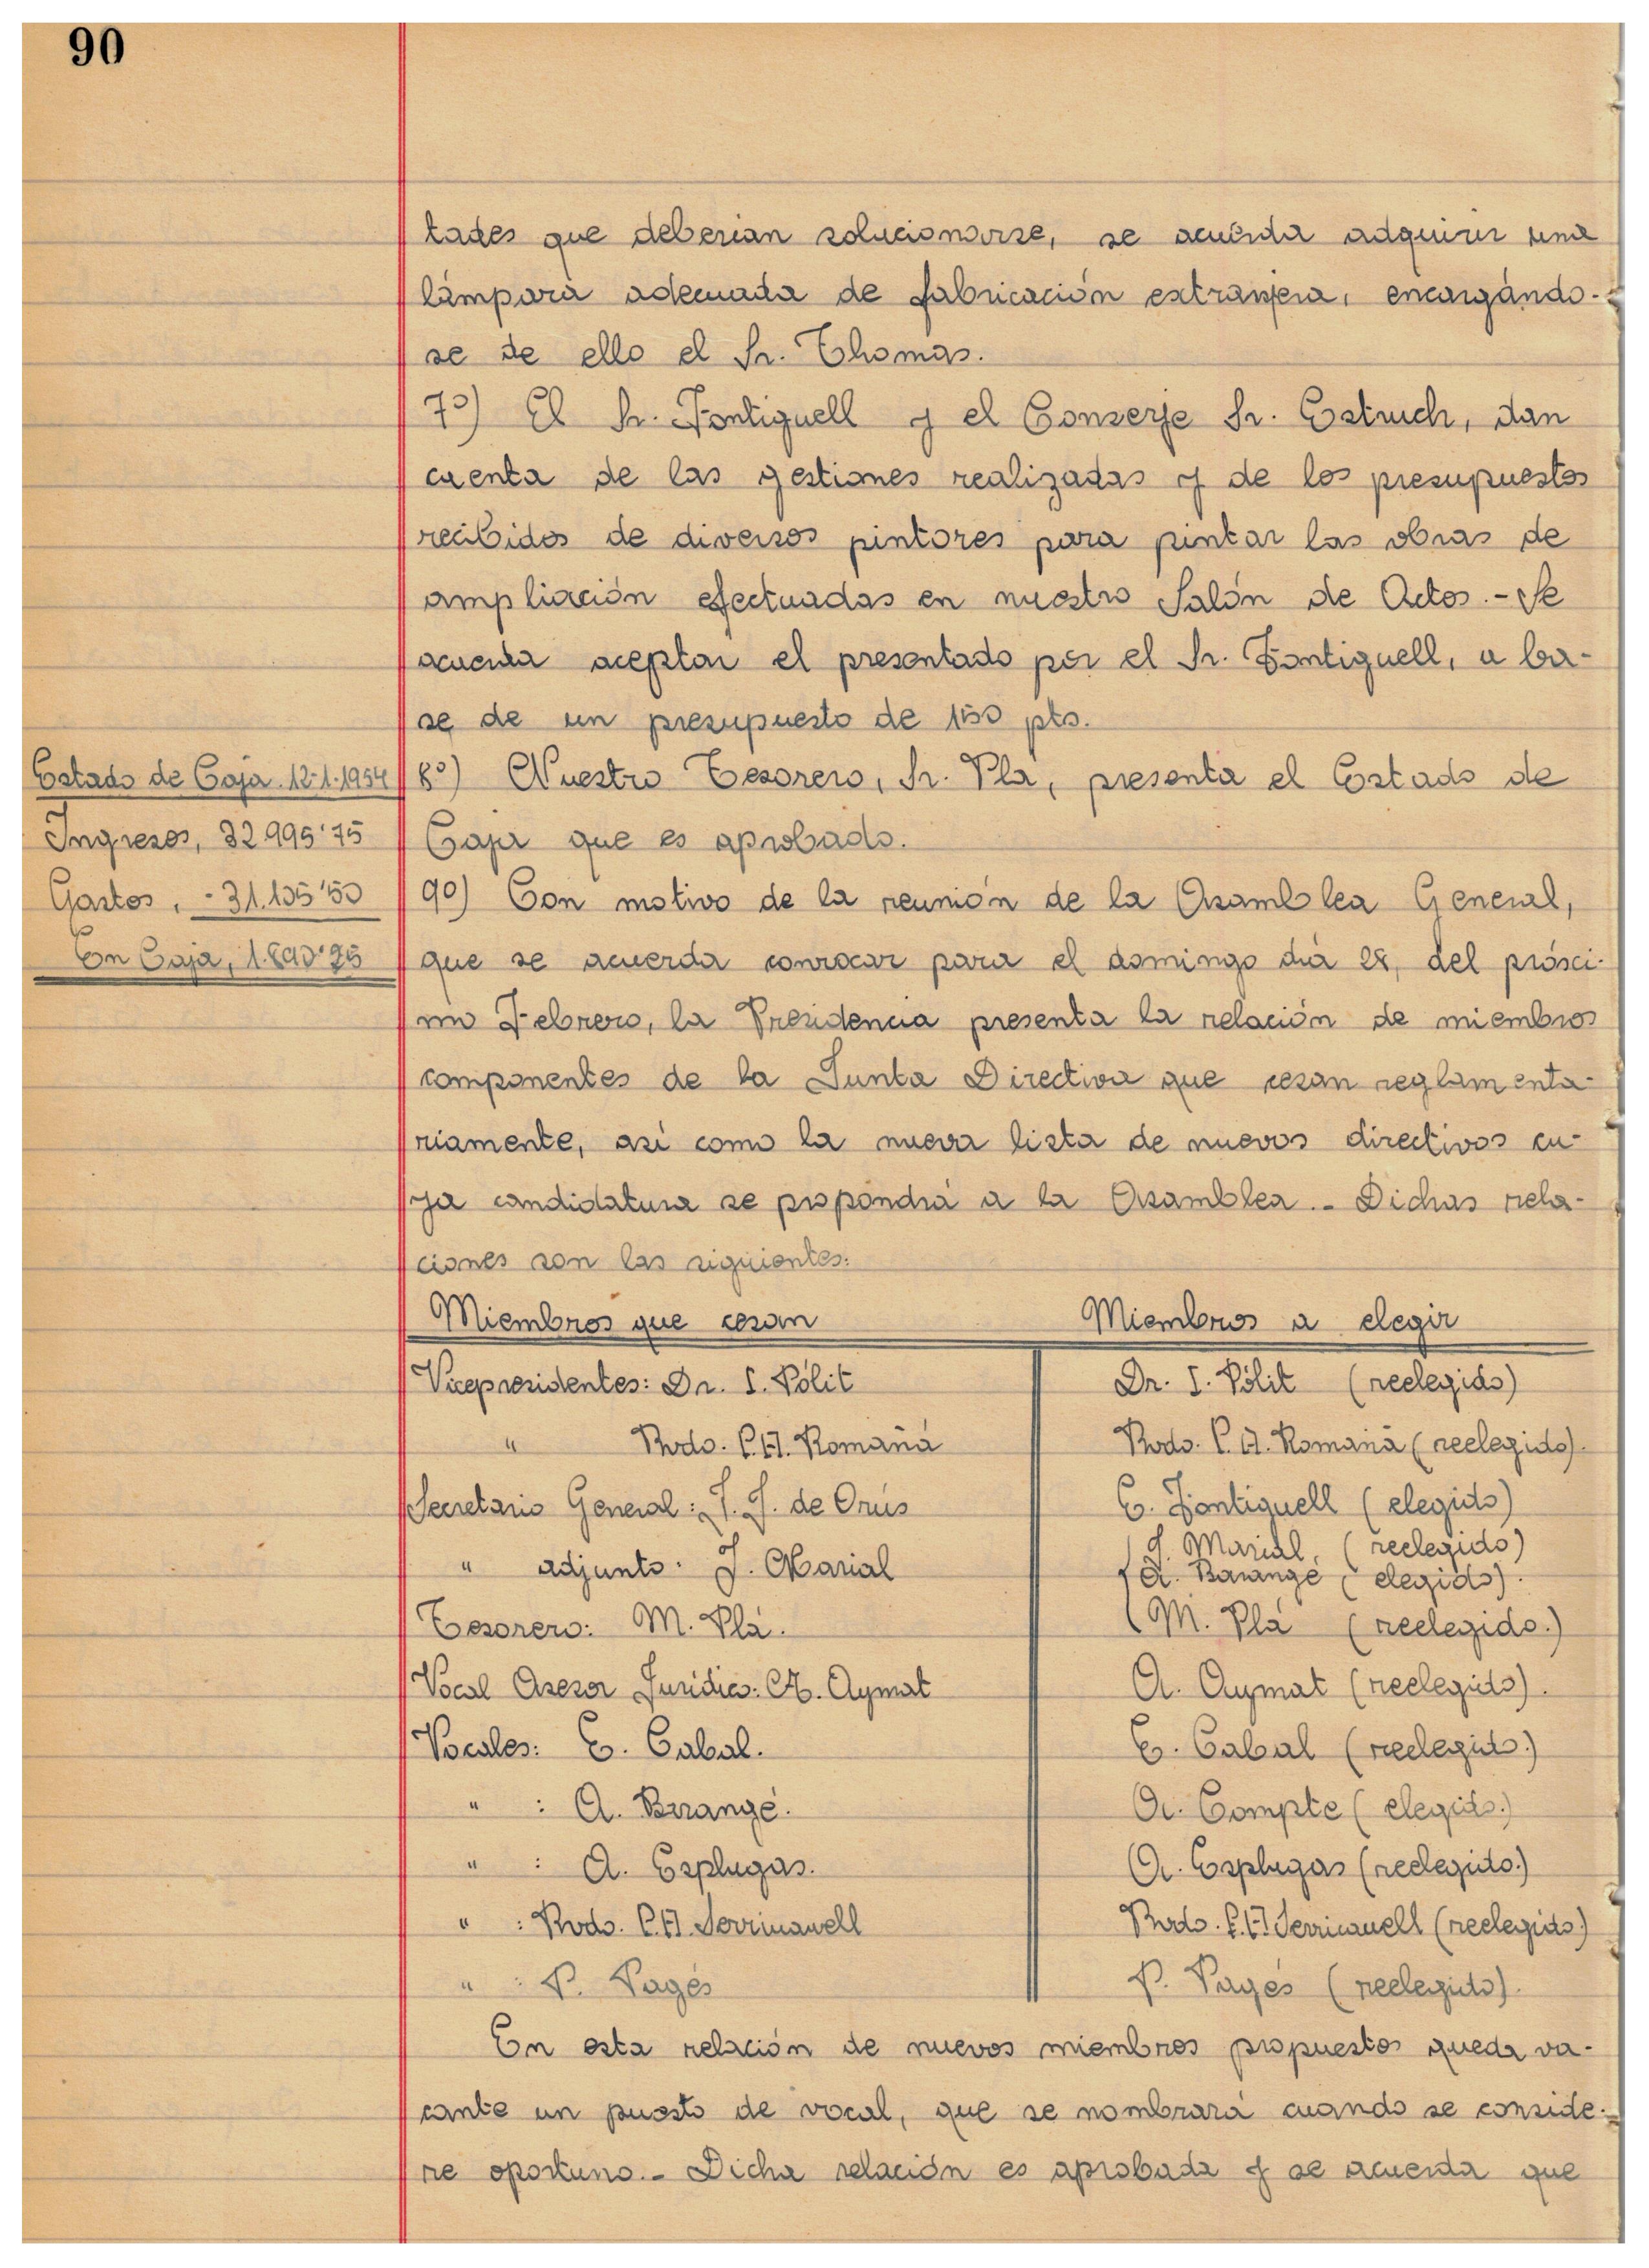 90
tades que deberian solucionarse, se acuerda adquirir una
lámpara adecuada de fabricación extranjera, encargándo-
se de ello el Sr. Thomas.
7º) El Sr. Fontiguell y el Conserje Sr. Estruch, dan
cuenta de las gestiones realizadas y de los presupuestos
recibidos de diversos pintores para pintar las obras de
ampliación efectuadas en nuestro Salón de Actos.- Se
acuerda aceptar el presentado por el Sr. Fontiguell, a ba-
se de un presupuesto de 150 pts.
Estado de Caja. 12-1-1954
Ingresos, 32.995'75
Gastos, - 31.105'50
En Caja, 1.890'25
8º) Nuestro Tesorero, Sr. Pla, presenta el Estado de
Caja que es aprobado.
9º) Con motivo de la reunión de la Asamblea General,
que se acuerda convocar para el domingo dia 28, del próxi-
mo Febrero, la Presidencia presenta la relación de miembros
componentes de la Junta Directiva que cesan reglamenta-
riamente, asi como la nueva lista de nuevos directivos cu-
ya candidatura se propondrá a la Asamblea.- Dichas rela-
ciones son las siguientes:
Miembros que cesan Miembros a elegir
Vicepresidentes: Dr. I. Pólit Dr. I. Pólit (reelegido)
" Rvdo. P. A. Romañá Rvdo. P. A. Romañá (reelegido).
Secretario General: J. J. de Orús E. Fontiguell (elegido)
" adjunto: J. Marial J. Marial, (reelegido)
A. Barangé (elegido).
Tesorero: M. Plá. M. Plá (reelegido.)
Vocal Asesor Juridico: A. Aymat A. Aymat (reelegido).
Vocales: E. Cabal. E. Cabal (reelegido.)
" : A. Barangé. A. Compte (elegido.)
" : A. Esplugas. A. Esplugas (reelegido.)
" : Rvdo. P. A. Serricanell Rvdo. P. A. Serricanell (reelegido.)
" : P. Pagés P. Pagés (reelegido).
En esta relación de nuevos miembros propuestos queda va-
cante un puesto de vocal, que se nombrará cuando se conside-
re oportuno.- Dicha relación es aprobada y se acuerda que